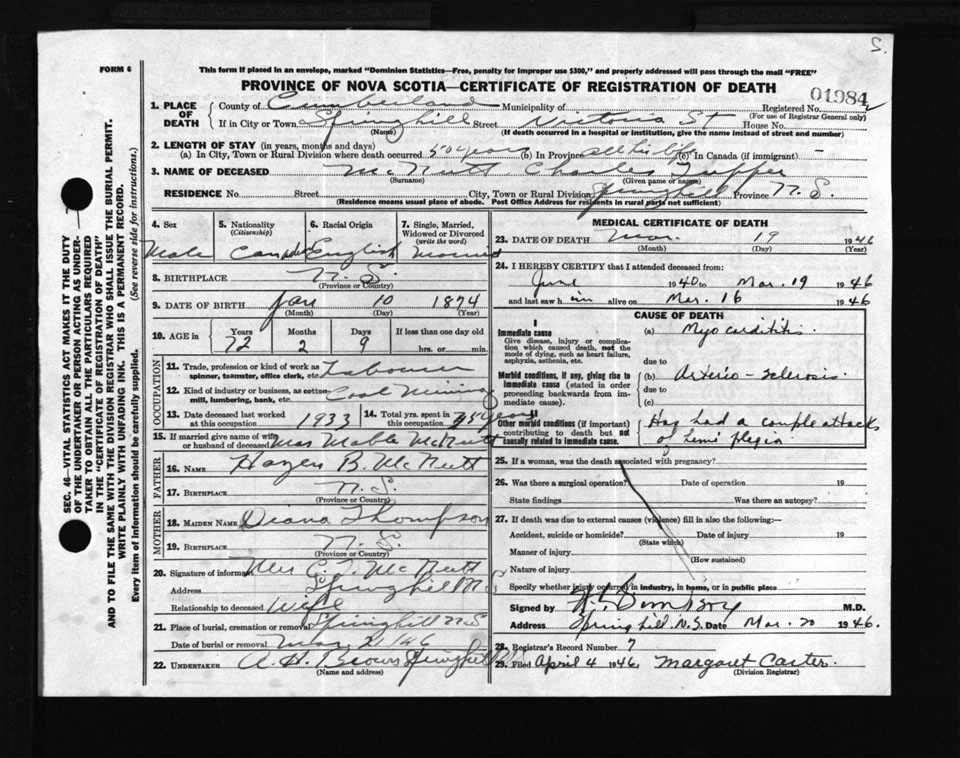 S.
FORM 6
This form if placed in an envelope, marked "Dominion Statistics—Free, penalty for improper use $300," and properly addressed will pass through the mail "FREE"
PROVINCE OF NOVA SCOTIA—CERTIFICATE OF REGISTRATION OF DEATH
01984
1. PLACE OF DEATH County of Cumberland Municipality of Registered No.
(For use of Registrar General only)
If in City or Town Springhill Street Victoria St House No.
(Name) (If death occurred in a hospital or institution, give the name instead of street and number)
2. LENGTH OF STAY (in years, months and days)
(a) In City, Town or Rural Division where death occurred 50 years (b) In Province all his life (c) In Canada (if immigrant) —
3. NAME OF DECEASED McNutt Charles Tupper
(Surname) (Given name or names)
RESIDENCE No. Street City, Town or Rural Division Springhill Province N. S.
(Residence means usual place of abode. Post Office Address for residents in rural parts not sufficient)
4. Sex 5. Nationality (Citizenship) 6. Racial Origin 7. Single, Married, Widowed or Divorced (write the word)
Male English Married
8. BIRTHPLACE N. S.
(Province or Country)
9. DATE OF BIRTH Jan 10 1874
(Month) (Day) (Year)
10. AGE in Years Months Days If less than one day old
72 2 9 hrs. or min.
OCCUPATION
11. Trade, profession or kind of work as spinner, teamster, office clerk, etc. Labourer
12. Kind of industry or business, as cotton mill, lumbering, bank, etc. Coal Mining
13. Date deceased last worked at this occupation 1933 14. Total yrs. spent in this occupation 35 years
15. If married give name of wife or husband of deceased Mrs Mable McNutt
FATHER
16. NAME Hazen B. McNutt
17. BIRTHPLACE N. S.
(Province or Country)
MOTHER
18. MAIDEN NAME Diana Thompson
19. BIRTHPLACE N. S.
(Province or Country)
20. Signature of informant Mrs C. T. McNutt
Address Springhill N S
Relationship to deceased Wife
21. Place of burial, cremation or removal Springhill N.S
Date of burial or removal Mar 21 46
22. UNDERTAKER A. H. Brown Springhill
(Name and address)
MEDICAL CERTIFICATE OF DEATH
23. DATE OF DEATH Mar. 19 1946
(Month) (Day) (Year)
24. I HEREBY CERTIFY that I attended deceased from:
June 1940 to Mar. 19 1946
and last saw him alive on Mar. 16 1946
CAUSE OF DEATH
I
Immediate cause (a) Myocarditis.
Give disease, injury or complication which caused death, not the mode of dying, such as heart failure, asphyxia, asthenia, etc.
due to
Morbid conditions, if any, giving rise to immediate cause (stated in order proceeding backwards from immediate cause). (b) Arterio-sclerosis.
due to
(c)
II
Other morbid conditions (if important) contributing to death but not causally related to immediate cause. Has had a couple attacks of hemiplegia.
25. If a woman, was the death associated with pregnancy?
26. Was there a surgical operation? Date of operation 19
State findings Was there an autopsy?
27. If death was due to external causes (violence) fill in also the following:—
Accident, suicide or homicide? Date of injury 19
(State which)
Manner of injury
(How sustained)
Nature of injury
Specify whether injury occurred in industry, in home, or in public place
Signed by M.D.
Address Springhill, N.S. Date Mar. 20 1946.
28. Registrar's Record Number 7
29. Filed April 4 1946. Margaret Carter.
(Division Registrar)
SEC. 46—VITAL STATISTICS ACT MAKES IT THE DUTY
OF THE UNDERTAKER OR PERSON ACTING AS UNDER-
TAKER TO OBTAIN ALL THE PARTICULARS REQUIRED
IN THE "CERTIFICATE OF REGISTRATION OF DEATH"
AND TO FILE THE SAME WITH THE DIVISION REGISTRAR WHO SHALL ISSUE THE BURIAL PERMIT.
WRITE PLAINLY WITH UNFADING INK. THIS IS A PERMANENT RECORD.
Every item of information should be carefully supplied. (See reverse side for instructions.)